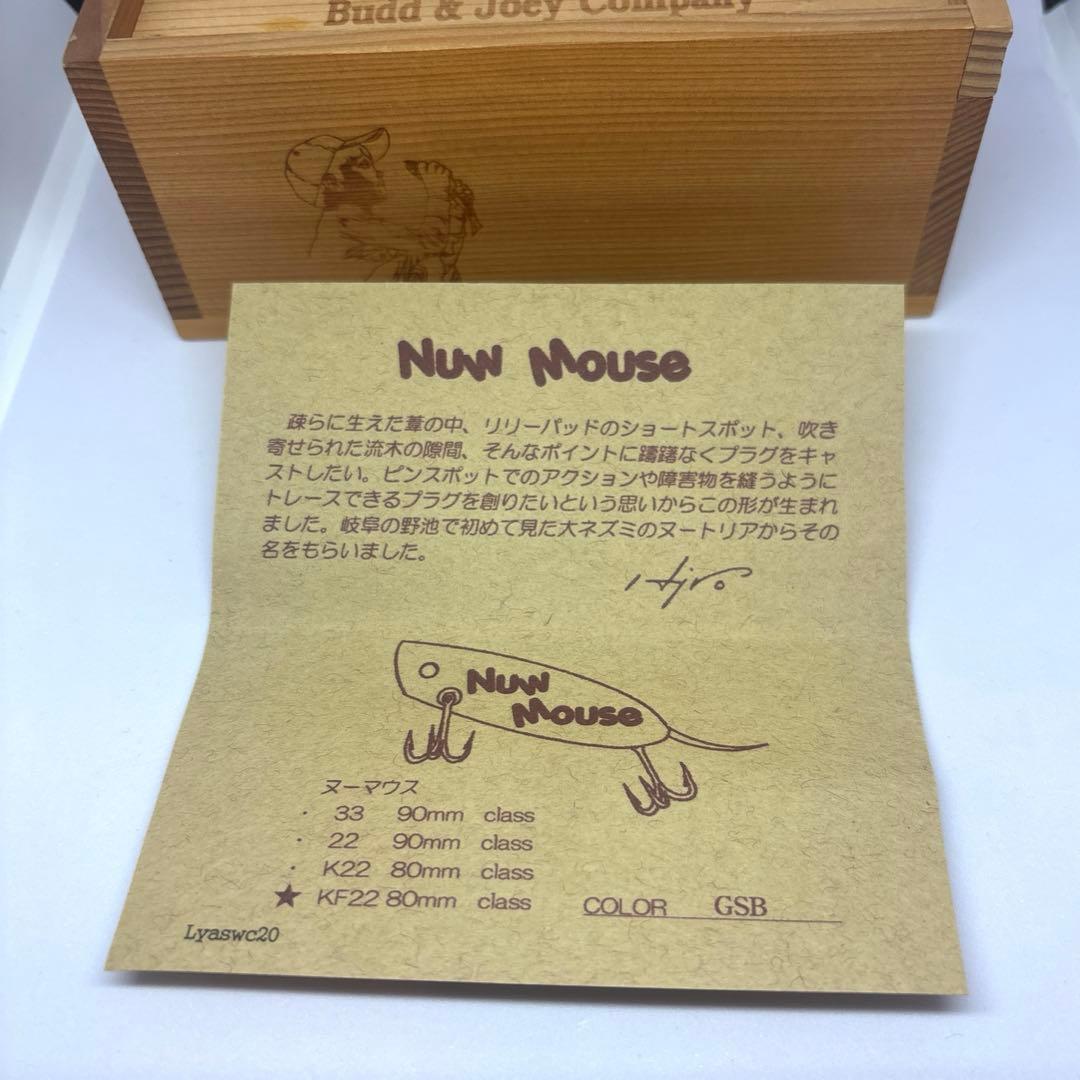 Budd & Joey Company
Nuw Mouse
疎らに生えた葦の中、リリーパッドのショートスポット、吹き
寄せられた流木の隙間、そんなポイントに躊躇なくプラグをキャ
ストしたい。ピンスポットでのアクションや障害物を縫うように
トレースできるプラグを創りたいという思いからこの形が生まれ
ました。岐阜の野池で初めて見た大ネズミのヌートリアからその
名をもらいました。
Hiro
Nuw
Mouse
ヌーマウス
・ 33 90mm class
・ 22 90mm class
・ K22 80mm class
★ KF22 80mm class
COLOR GSB
Lyaswc20